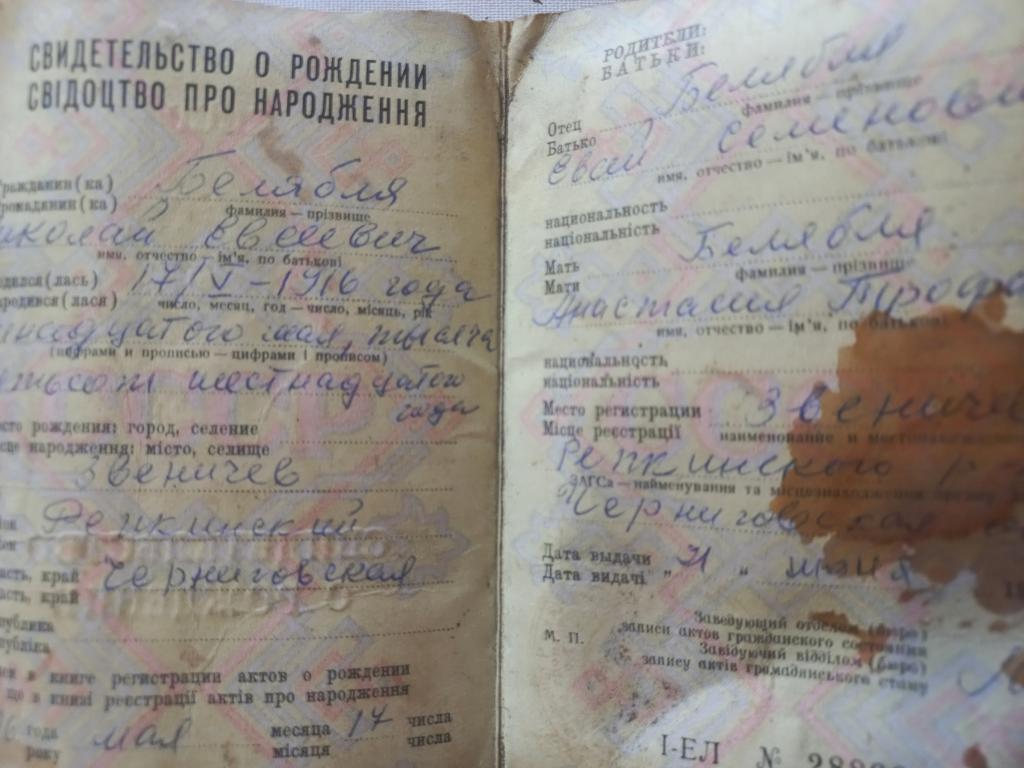 СВИДЕТЕЛЬСТВО О РОЖДЕНИИ
СВІДОЦТВО ПРО НАРОДЖЕННЯ
ражданин(ка) Белябля
ромадянин(ка)
фамилия — прізвище
иколай Евсеевич
имя, отчество — ім'я, по батькові
одился(лась) 17/V - 1916 года
ародився(лася) число, месяц, год — число, місяць, рік
надцатого мая, тысяча
(цифрами и прописью — цифрами і прописом)
ятьсот шестнадцатого
года
сто рождения: город, селение
сце народження: місто, селище
Звеничев
он Репкинский
асть, край Черниговская
асть, край
ублика
убліка
в книге регистрации актов о рождении
що в книзі реєстрації актів про народження
6 года мая месяца 17 числа
року місяця числа
РОДИТЕЛИ:
БАТЬКИ:
Отец Белябля
Батько фамилия — прізвище
Семенови
имя, отчество — ім'я, по батькові
национальность
національність
Мать Белябля
Мати фамилия — прізвище
Анастасия Трофи
имя, отчество — ім'я, по батькові
национальность
національність
Место регистрации Звеничев
Місце реєстрації наименование и местонахождение
Репкинского р
ЗАГСа — найменування та місцезнаходження органу
Черниговская
Дата выдачи
Дата видачі " "
М. П.
Заведующий отделом (бюро)
записи актов гражданского состояния
Завідуючий відділом (бюро)
запису актів громадянського стану
І-ЕЛ № 288